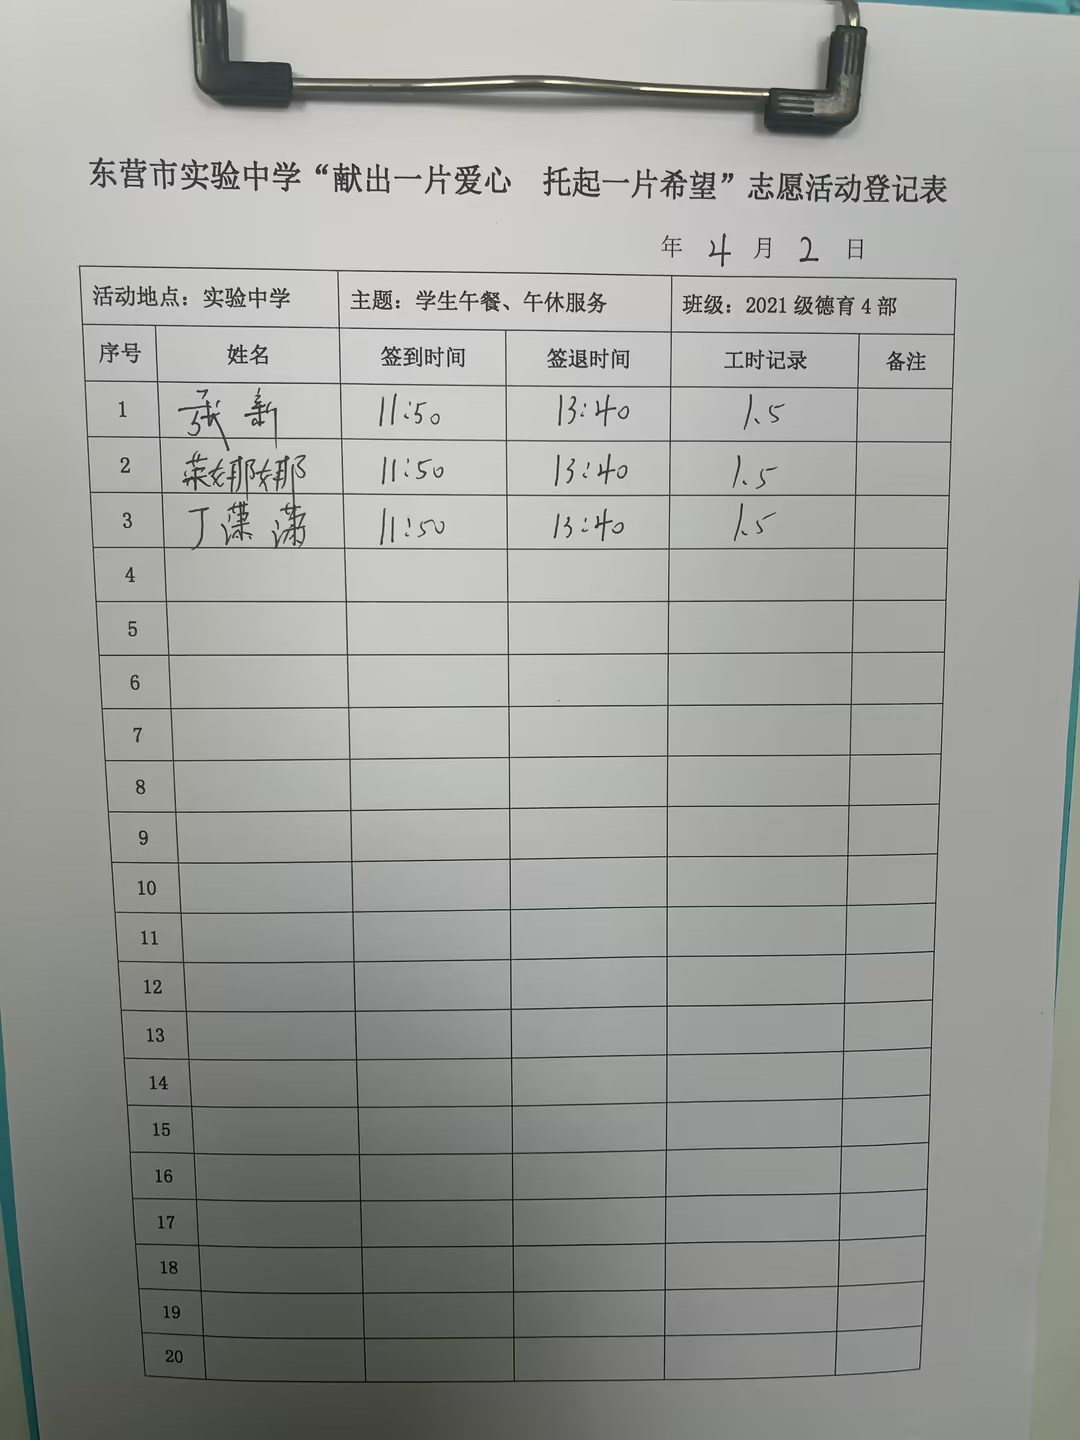 东营市实验中学“献出一片爱心 托起一片希望”志愿活动登记表
年 4 月 2 日
活动地点：实验中学 主题：学生午餐、午休服务 班级：2021 级德育 4 部
序号 姓名 签到时间 签退时间 工时记录 备注
1 张新 11:50 13:40 1.5
2 荣娜娜 11:50 13:40 1.5
3 丁潇潇 11:50 13:40 1.5
4
5
6
7
8
9
10
11
12
13
14
15
16
17
18
19
20